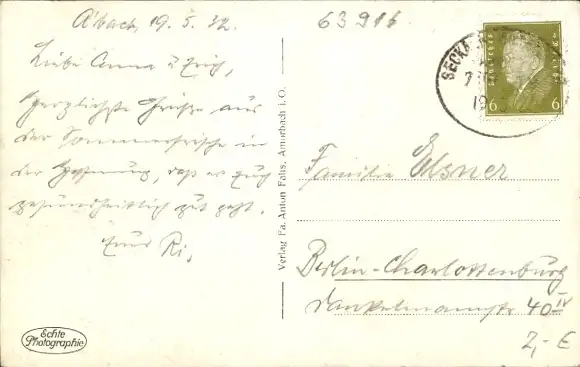 A'bach, 19.5.32.
Liebe Anna u Erich,
Herzlichste Grüße aus
der Sommerfrische in
der Hoffnung, daß es Euch
gesundheitlich gut geht.
Eure Ri,
Echte
Photographie
Verlag Fa. Anton Fahs, Amorbach i. O.
63916
SECKA
19
6 6
Familie Elsner
Berlin-Charlottenburg
Danckelmannstr 40 IV
2,- €